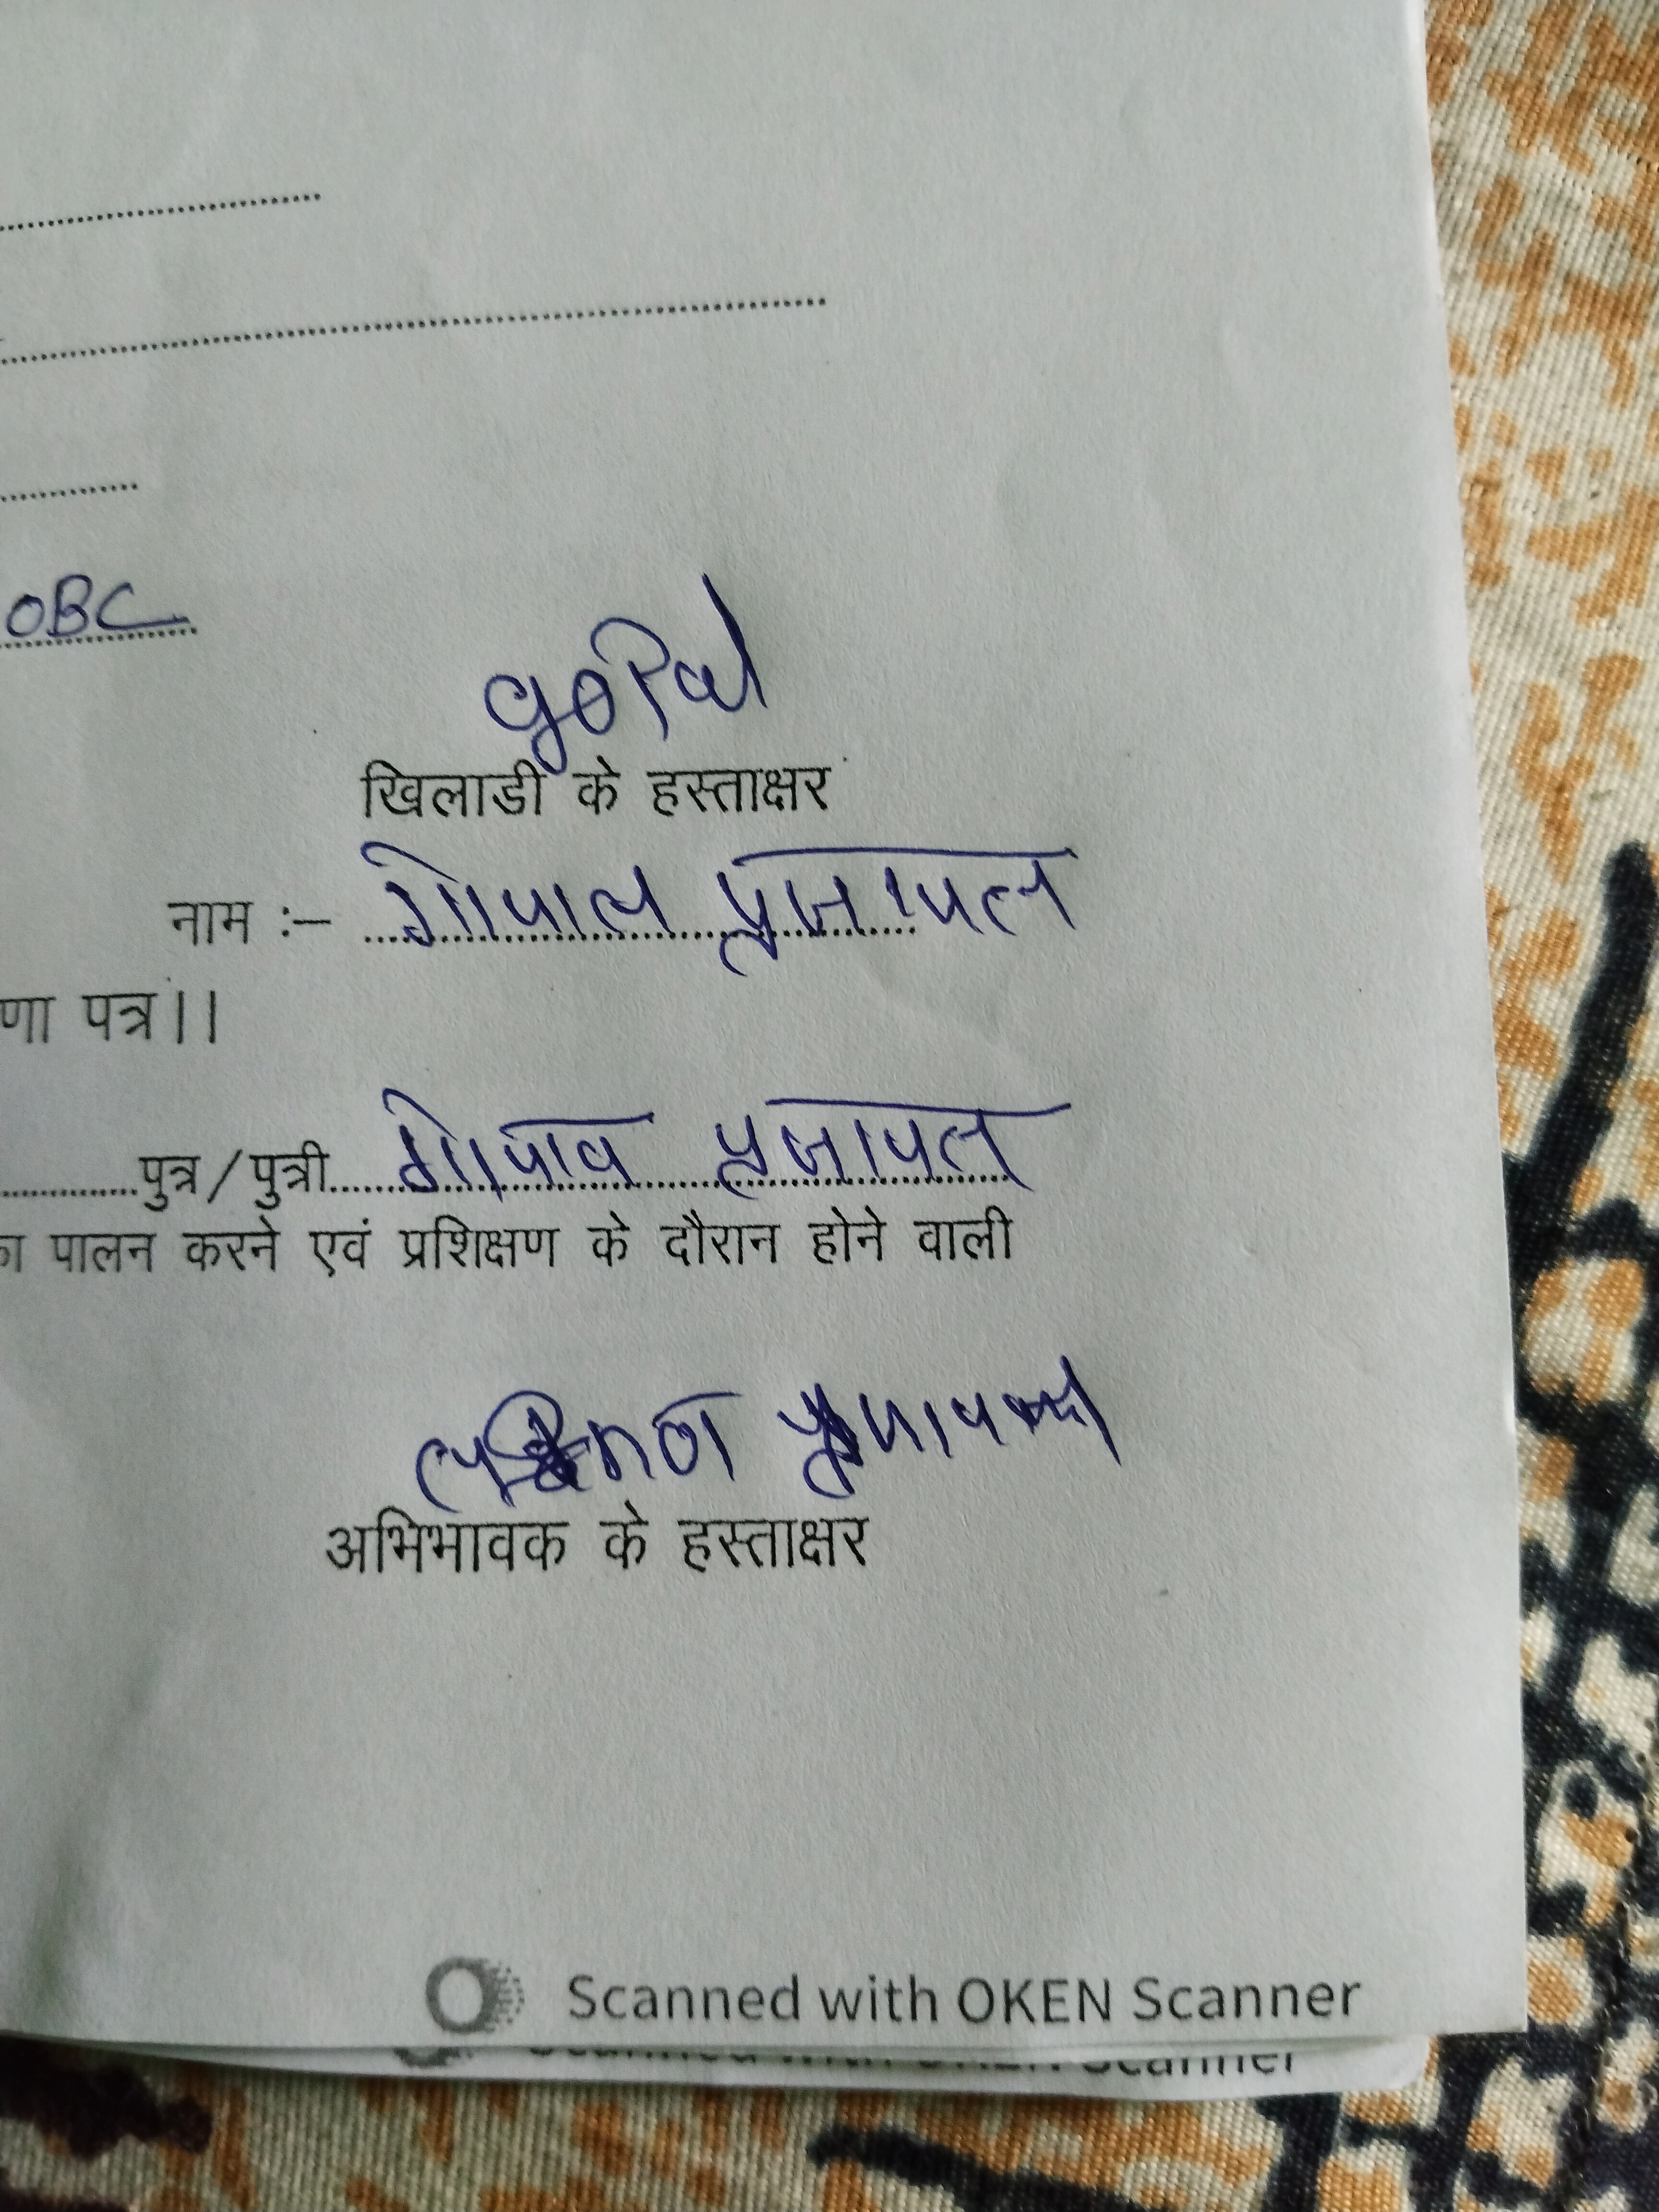 OBC
goPal
खिलाडी के हस्ताक्षर
नाम :- गोपाल प्रजापत
णा पत्र।।
पुत्र/पुत्री गोपाल प्रजापत
का पालन करने एवं प्रशिक्षण के दौरान होने वाली
अभिभावक के हस्ताक्षर
Scanned with OKEN Scanner
Scanned with OKEN Scanner